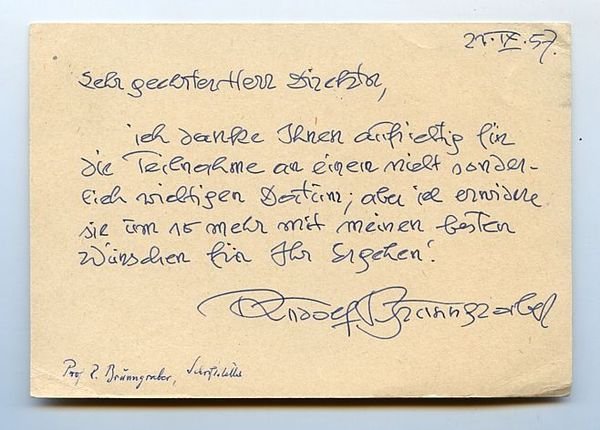 21.IX.57.
Sehr geehrter Herr Direktor,
ich danke Ihnen aufrichtig für
die Teilnahme an einem nicht sonder-
lich wichtigen Datum; aber ich erwidere
sie um so mehr mit meinen besten
Wünschen für Ihr Ergehen!
Rudolf Brunngraber
Prof R. Brunngraber, Schriftsteller